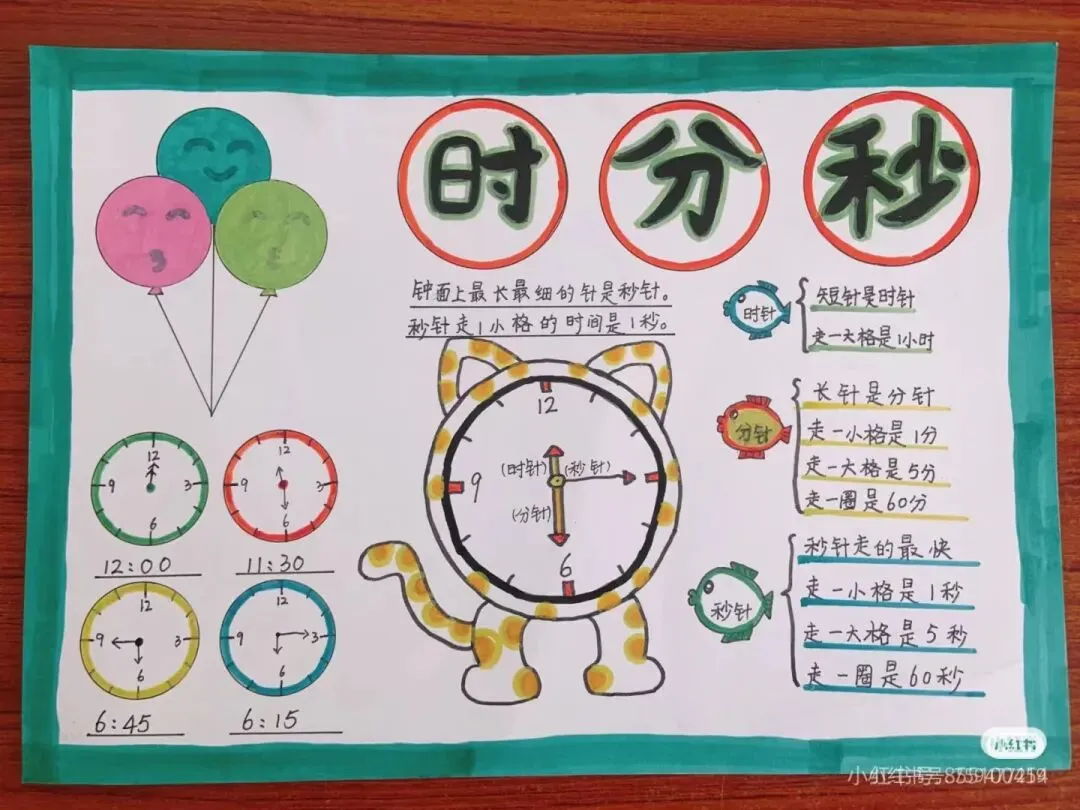 时 分 秒
钟面上最长最细的针是秒针。
秒针走1小格的时间是1秒。
时针
短针是时针
走一大格是1小时
分针
长针是分针
走一小格是1分
走一大格是5分
走一圈是60分
秒针
秒针走的最快
走一小格是1秒
走一大格是5秒
走一圈是60秒
12
9
6
(时针)
(秒针)
(分针)
12
9
3
6
12:00
12
9
3
6
11:30
12
9
3
6
6:45
12
9
3
6
6:15
小红书